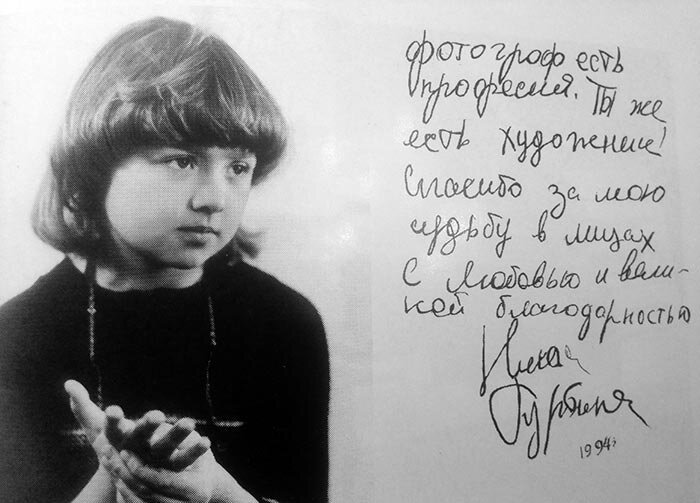 фотограф есть
професия. Ты же
есть художник!
Спасибо за мою
судьбу в лицах
С любовью и вели-
кой благодарностью
Ника
Турбина
1994г